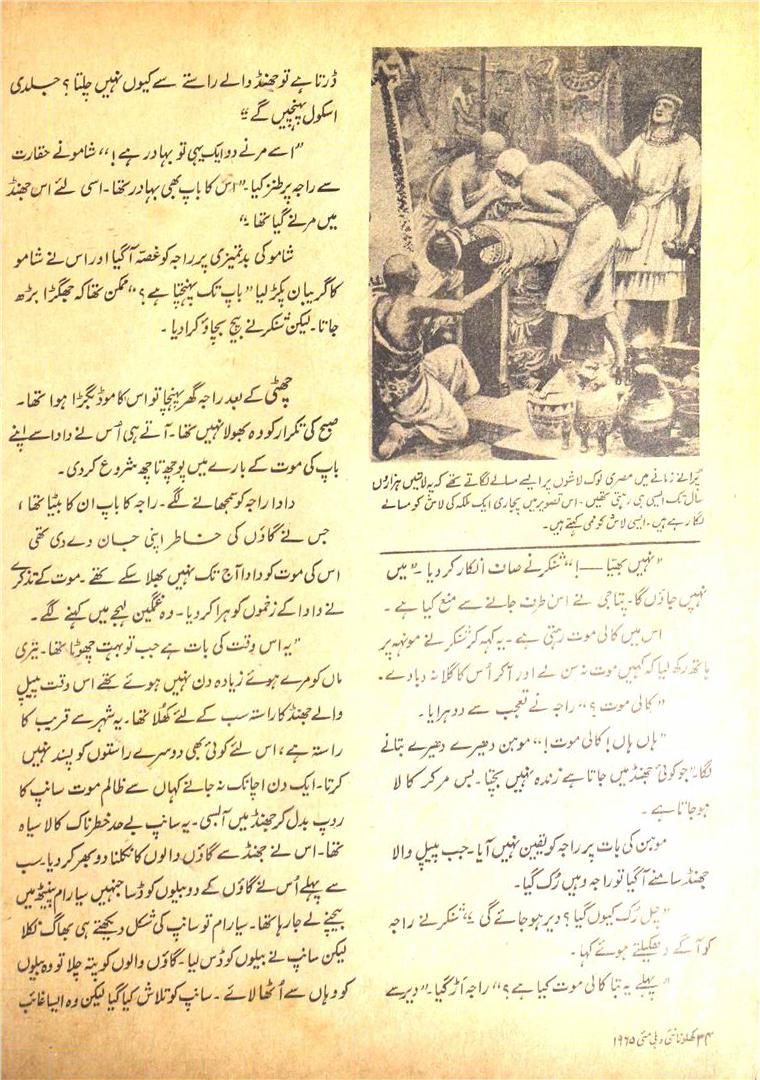 پرانے زمانے میں مصری لوگ لاشوں پر ایسے مسالے لگاتے تھے کہ یہ لاشیں ہزاروں
سال تک ایسی ہی رہتی تھیں۔ اس تصویر میں پجاری ایک ملکہ کی لاش کو مسالے
لگا رہے ہیں۔ ایسی لاش کو ممی کہتے ہیں۔
”نہیں بھیّا —!“ شنکر نے صاف انکار کر دیا۔ ”میں
نہیں جاؤں گا۔ پتاجی نے اس طرف جانے سے منع کیا ہے۔
اس میں کالی موت رہتی ہے۔ یہ کہہ کر شنکر نے مونہہ پر
ہاتھ رکھ لیا کہ کہیں موت نہ سن لے اور آکر اُس کا گلا نہ دبا دے۔
”کالی موت؟“ راجہ نے تعجب سے دہرایا۔
”ہاں ہاں! کالی موت!“ موہن دھیرے دھیرے بتانے
لگا۔ ”جو کوئی جھنڈ میں جاتا ہے زندہ نہیں بچتا۔ بس مر کر کالا
ہو جاتا ہے۔
موہن کی بات پر راجہ کو یقین نہیں آیا۔ جب پیپل والا
جھنڈ سامنے آگیا تو راجہ وہیں رُک گیا۔
”چل رُک کیوں گیا؟ دیر ہو جائے گی۔“ شنکر نے راجہ
کو آگے دھکیلتے ہوئے کہا۔
”پہلے یہ بتا کالی موت کیا ہے؟“ راجہ اَڑ گیا۔ ”دیر سے
ڈرتا ہے تو جھنڈ والے راستے سے کیوں نہیں چلتا؟ جلدی
اسکول پہنچیں گے۔“
”اسے مرنے دو ایک یہی تو بہادر ہے!“ شامو نے حقارت
سے راجہ پر طنز کیا۔ ”اس کا باپ بھی بہادر تھا۔ اسی لئے اس جھنڈ
میں مرنے گیا تھا۔“
شامو کی بدتمیزی پر راجہ کو غصّہ آگیا اور اس نے شامو
کا گریبان پکڑ لیا ”باپ تک پہنچتا ہے؟“ ممکن تھا کہ جھگڑا بڑھ
جاتا۔ لیکن شنکر نے بیچ بچاؤ کرا دیا۔
چھٹی کے بعد راجہ گھر پہنچا تو اس کا موڈ بگڑا ہوا تھا۔
صبح کی تکرار کو وہ بھولا نہیں تھا۔ آتے ہی اُس نے دادا سے اپنے
باپ کی موت کے بارے میں پوچھ تاچھ شروع کردی۔
دادا راجہ کو سمجھانے لگے۔ راجہ کا باپ ان کا بیٹا تھا،
جس نے گاؤں کی خاطر اپنی جان دے دی تھی
اس کی موت کو دادا آج تک نہیں بھلا سکے تھے۔ موت کے تذکرے
نے دادا کے زخموں کو ہرا کر دیا۔ وہ غمگین لہجے میں کہنے لگے۔
”یہ اس وقت کی بات ہے جب تو بہت چھوٹا تھا۔ تیری
ماں کو مرے ہوئے زیادہ دن نہیں ہوئے تھے اس وقت پیپل
والے جھنڈ کا راستہ سب کے لئے کھُلا تھا۔ یہ شہر سے قریب کا
راستہ ہے، اس لئے کوئی بھی دوسرے راستوں کو پسند نہیں
کرتا۔ ایک دن اچانک نہ جانے کہاں سے ظالم موت سانپ کا
روپ بدل کر جھنڈ میں آ بسی۔ یہ سانپ بے حد خطرناک کالا سیاہ
تھا۔ اس نے جھنڈ سے گاؤں والوں کا نکلنا دوبھر کر دیا۔ سب
سے پہلے اُس نے گاؤں کے دو بیلوں کو ڈسا جنہیں سیارام پینٹھ میں
بیچنے لے جا رہا تھا۔ سیارام تو سانپ کی شکل دیکھتے ہی بھاگ نکلا
لیکن سانپ نے بیلوں کو ڈس لیا۔ گاؤں والوں کو پتہ چلا تو وہ بیلوں
کو وہاں سے اُٹھا لائے۔ سانپ کو تلاش کیا گیا لیکن وہ ایسا غائب
۳۴ کھلونا نئی دہلی مئی ۱۹۶۵